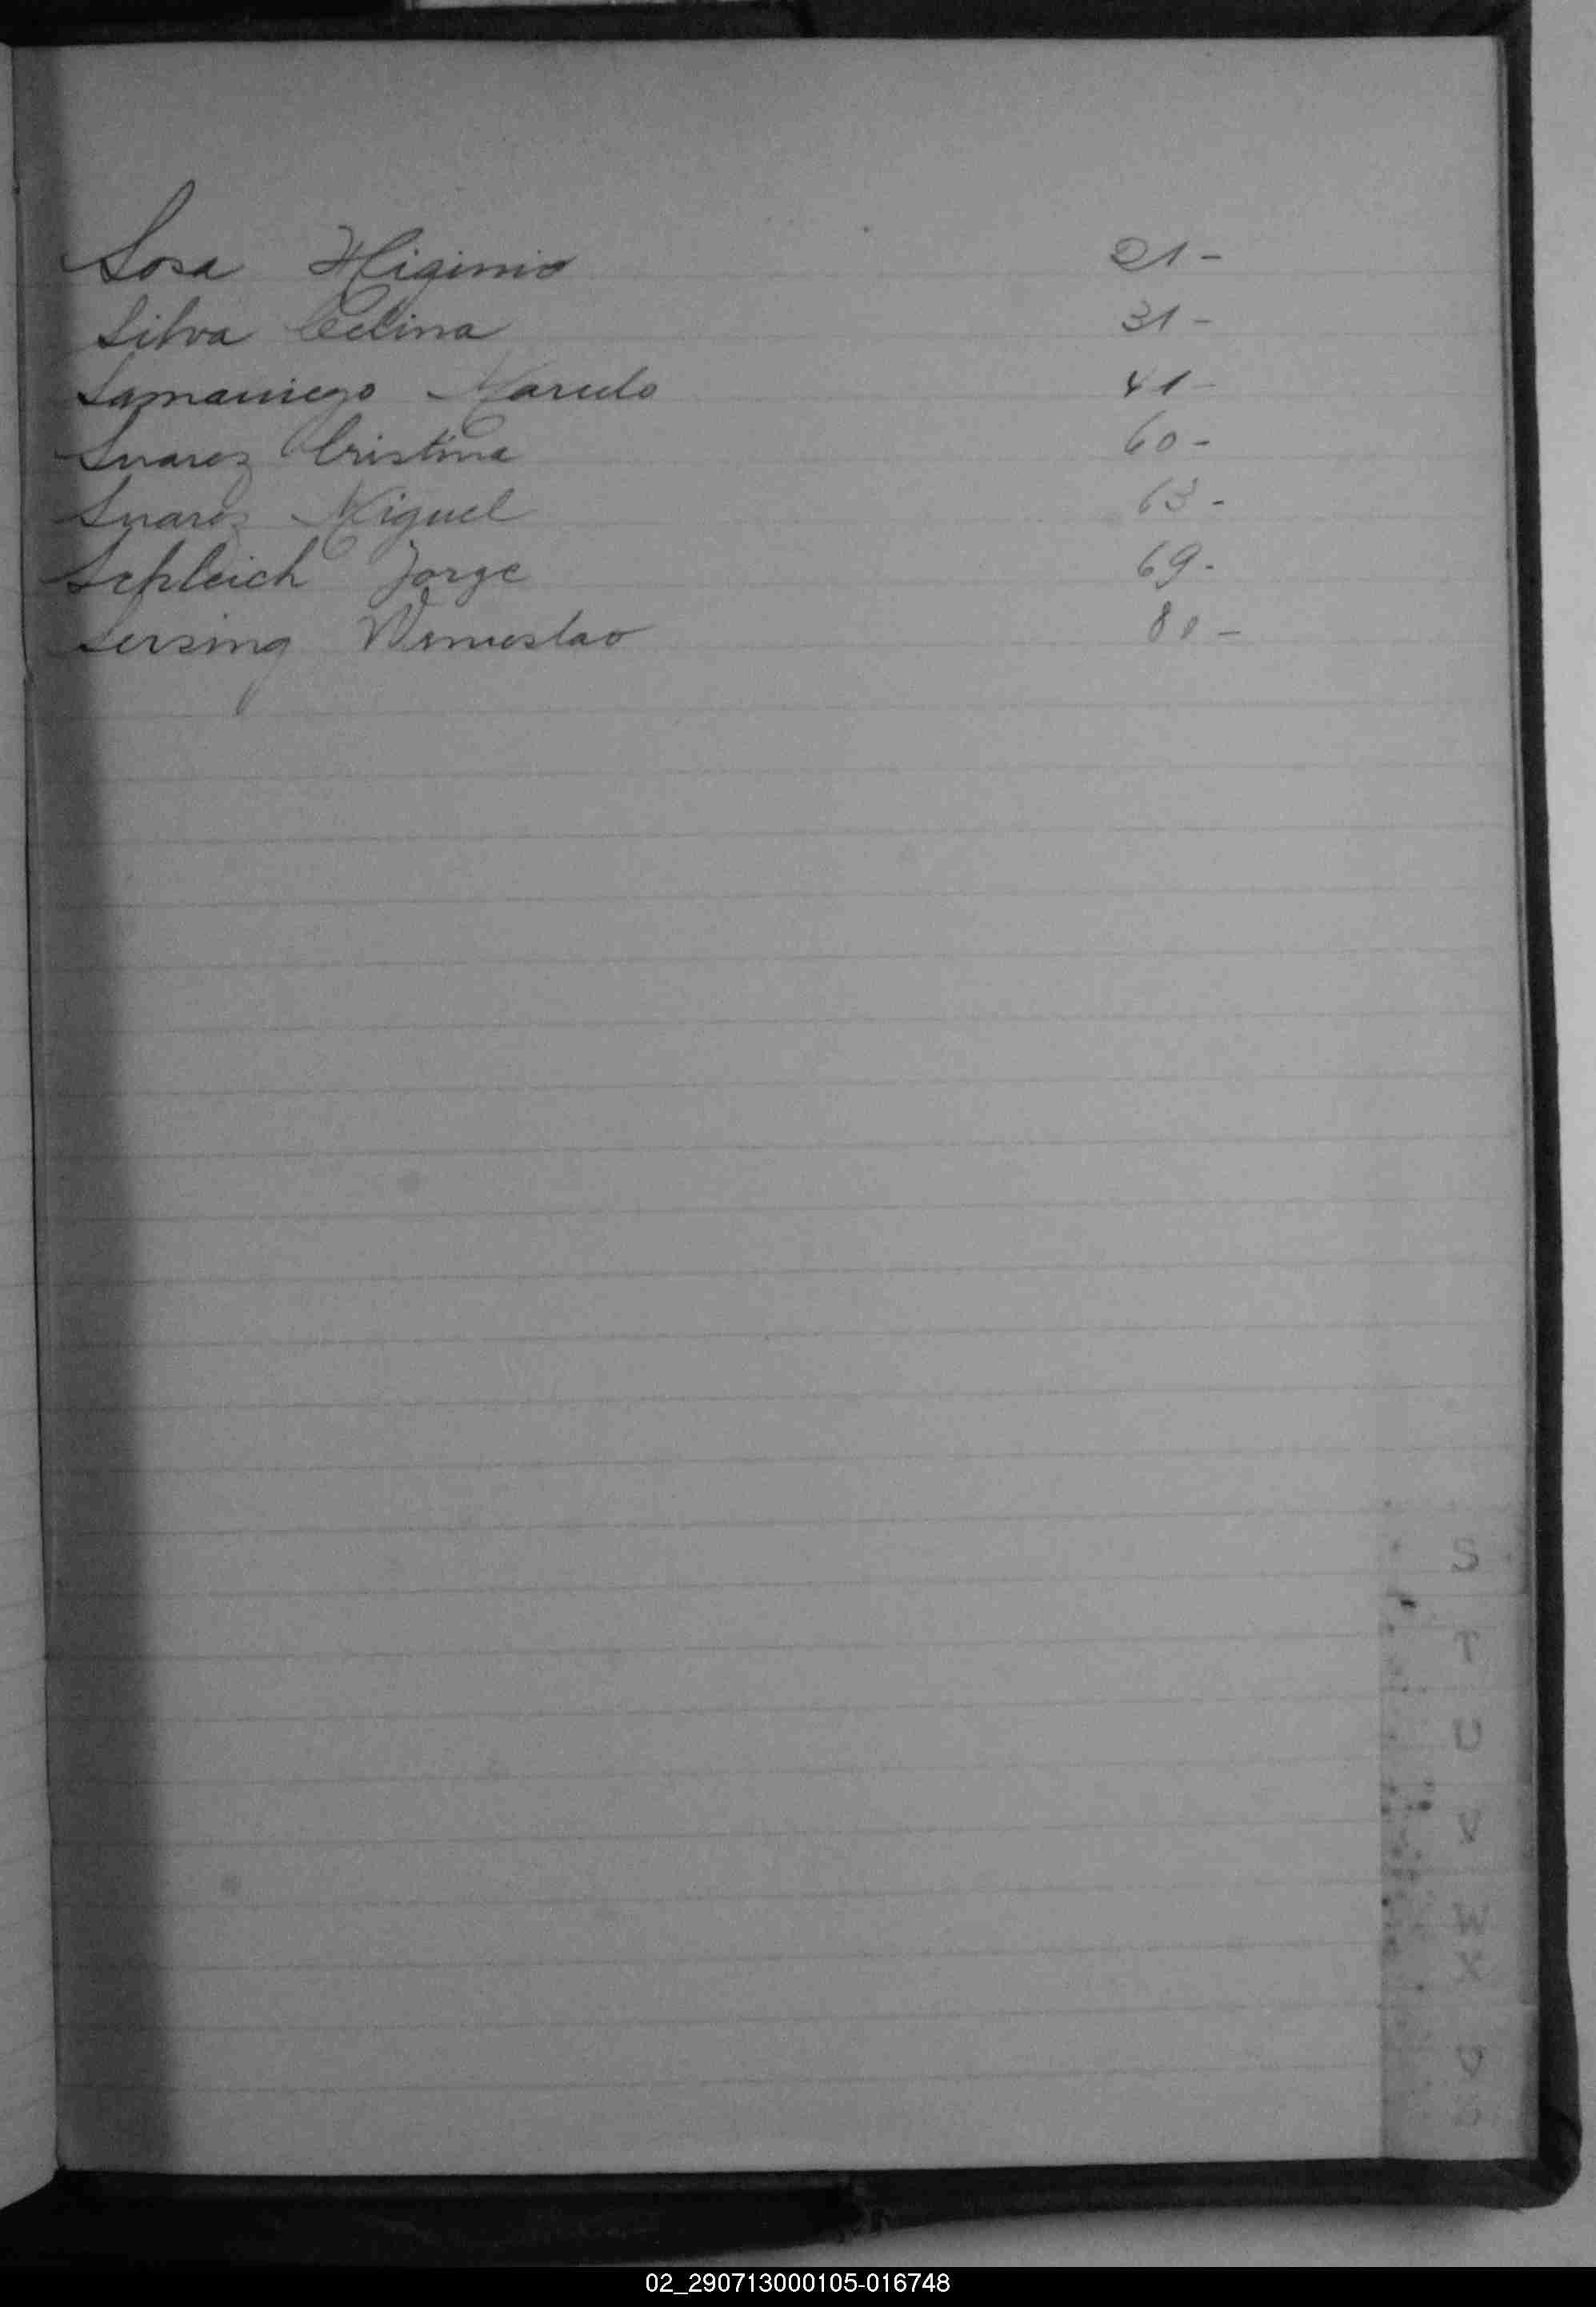 Sosa Higinio 21-
Silva Celina 31-
Samaniego Marcelo 41-
Suarez Cristina 60-
Suarez Miguel 63-
Schleich Jorge 69-
Sersing Wenceslao 80-
S
T
U
V
W
X
02_290713000105-016748